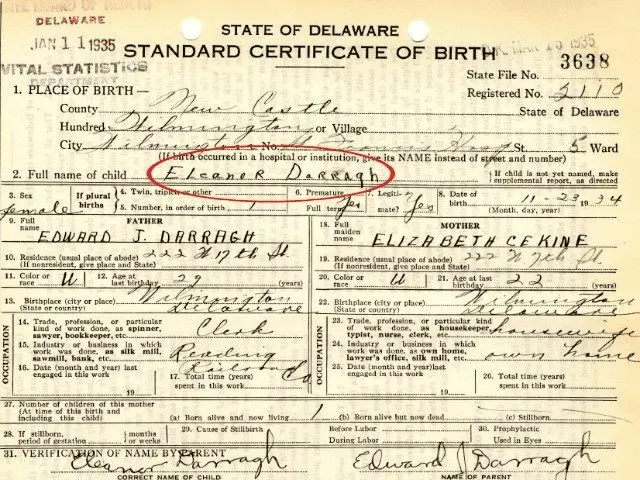 STATE BOARD OF HEALTH
DELAWARE
JAN 11 1935
VITAL STATISTICS
DEPARTMENT
STATE OF DELAWARE
STANDARD CERTIFICATE OF BIRTH
MAR 15 1935
3638
State File No.
Registered No. 2110
1. PLACE OF BIRTH—
County New Castle State of Delaware
Hundred Wilmington or Village
City Wilmington No. Hosp St. 5 Ward
(If birth occurred in a hospital or institution, give its NAME instead of street and number)
2. Full name of child ELeanor Darragh
If child is not yet named, make supplemental report, as directed
3. Sex female
If plural births
4. Twin, triplet, or other
5. Number, in order of birth 1
6. Premature
Full term Yes
7. Legitimate? Yes
8. Date of birth 11-23 1934
(Month, day, year)
9. Full name FATHER
EDWARD J. DARRAGH
10. Residence (usual place of abode) 222 W 17th St.
(If nonresident, give place and State)
11. Color or race W
12. Age at last birthday 29 (years)
13. Birthplace (city or place) Wilmington
(State or country) Delaware
OCCUPATION
14. Trade, profession, or particular kind of work done, as spinner, sawyer, bookkeeper, etc. Clerk
15. Industry or business in which work was done, as silk mill, sawmill, bank, etc. Reading Railroad Co
16. Date (month and year) last engaged in this work
19
17. Total time (years) spent in this work
18. Full maiden name MOTHER
ELIZABETH CEKINE
19. Residence (usual place of abode) 222 W 17th St.
(If nonresident, give place and State)
20. Color or race W
21. Age at last birthday 22 (years)
22. Birthplace (city or place) Wilmington
(State or country) Delaware
OCCUPATION
23. Trade, profession, or particular kind of work done, as housekeeper, typist, nurse, clerk, etc. housewife
24. Industry or business in which work was done, as own home, lawyer's office, silk mill, etc. own home
25. Date (month and year) last engaged in this work
19
26. Total time (years) spent in this work
27. Number of children of this mother
(At time of this birth and including this child)
(a) Born alive and now living 1 (b) Born alive but now dead (c) Stillborn
28. If stillborn, period of gestation
months or weeks
29. Cause of Stillbirth
Before Labor
During Labor
30. Prophylactic Used in Eyes
31. VERIFICATION OF NAME BY PARENT
Eleanor Darragh Edward J Darragh
CORRECT NAME OF CHILD NAME OF PARENT